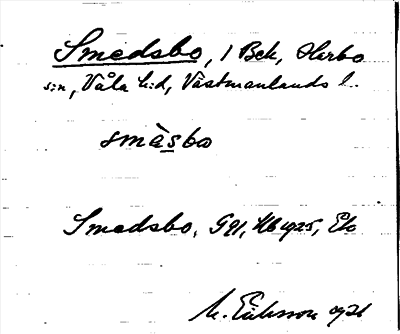 Smedsbo, 1 Bek, Harbo
s:n, Våla h:d, Västmanlands l.
smàsbo
Smedsbo, G91, Hb 1925, Ek
M. Eriksson 1926